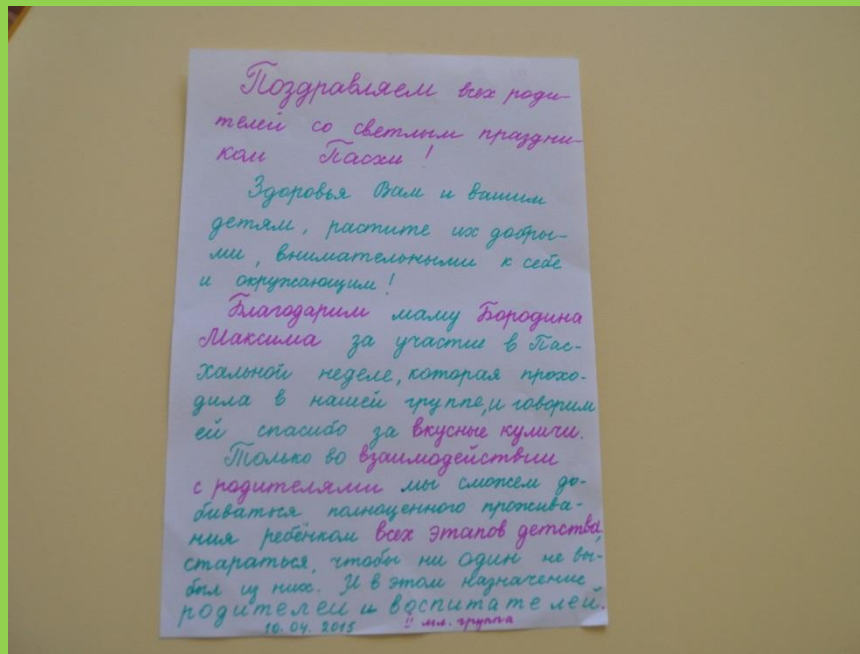 Поздравляем всех роди-
телей со светлым праздни-
ком Пасхи!
Здоровья Вам и вашим
детям, растите их добры-
ми, внимательными к себе
и окружающим!
Благодарим маму Бородина
Максима за участие в Пас-
хальной неделе, которая прохо-
дила в нашей группе, и говорим
ей спасибо за вкусные куличи.
Только во взаимодействии
с родителями мы сможем до-
биваться полноценного прожива-
ния ребёнком всех этапов детства,
стараться, чтобы ни один не вы-
был из них. И в этом назначение
родителей и воспитателей.
10.04.2015 II мл. группа